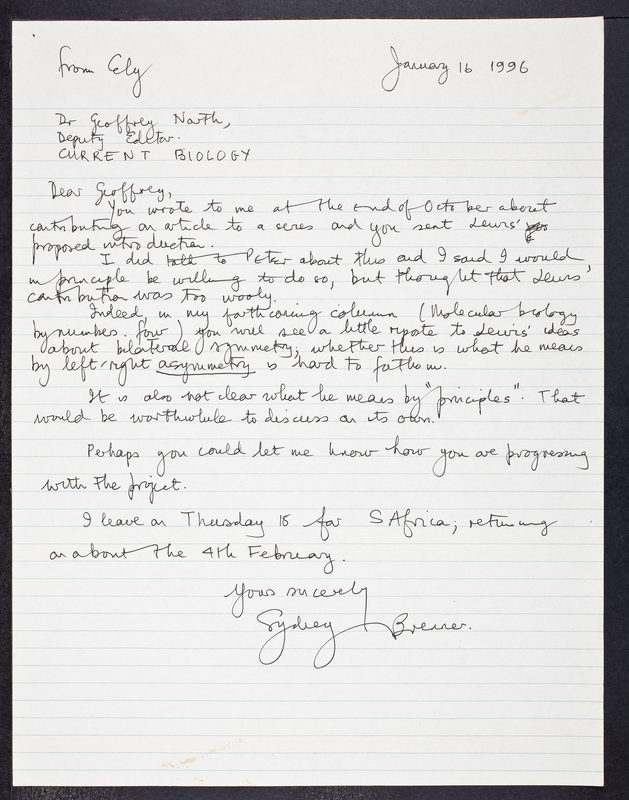 from Ely
January 16 1996
Dr Geoffrey North,
Deputy Editor.
CURRENT BIOLOGY
Dear Geoffrey,
You wrote to me at the end of October about
contributing an article to a series and you sent Lewis'
proposed introduction.
I did talk to Peter about this and I said I would
in principle be willing to do so, but thought that Lewis'
contribution was too wooly.
Indeed, in my forthcoming column (Molecular biology
by number. four) you will see a little riposte to Lewis' ideas
about bilateral symmetry, whether this is what he means
by left-right asymmetry is hard to fathom.
It is also not clear what he means by "principles". That
would be worthwhile to discuss on its own.
Perhaps you could let me know how you are progressing
with the project.
I leave on Thursday 18 for S Africa, returning
on about the 4th February.
Yours sincerely
Sydney Brenner.